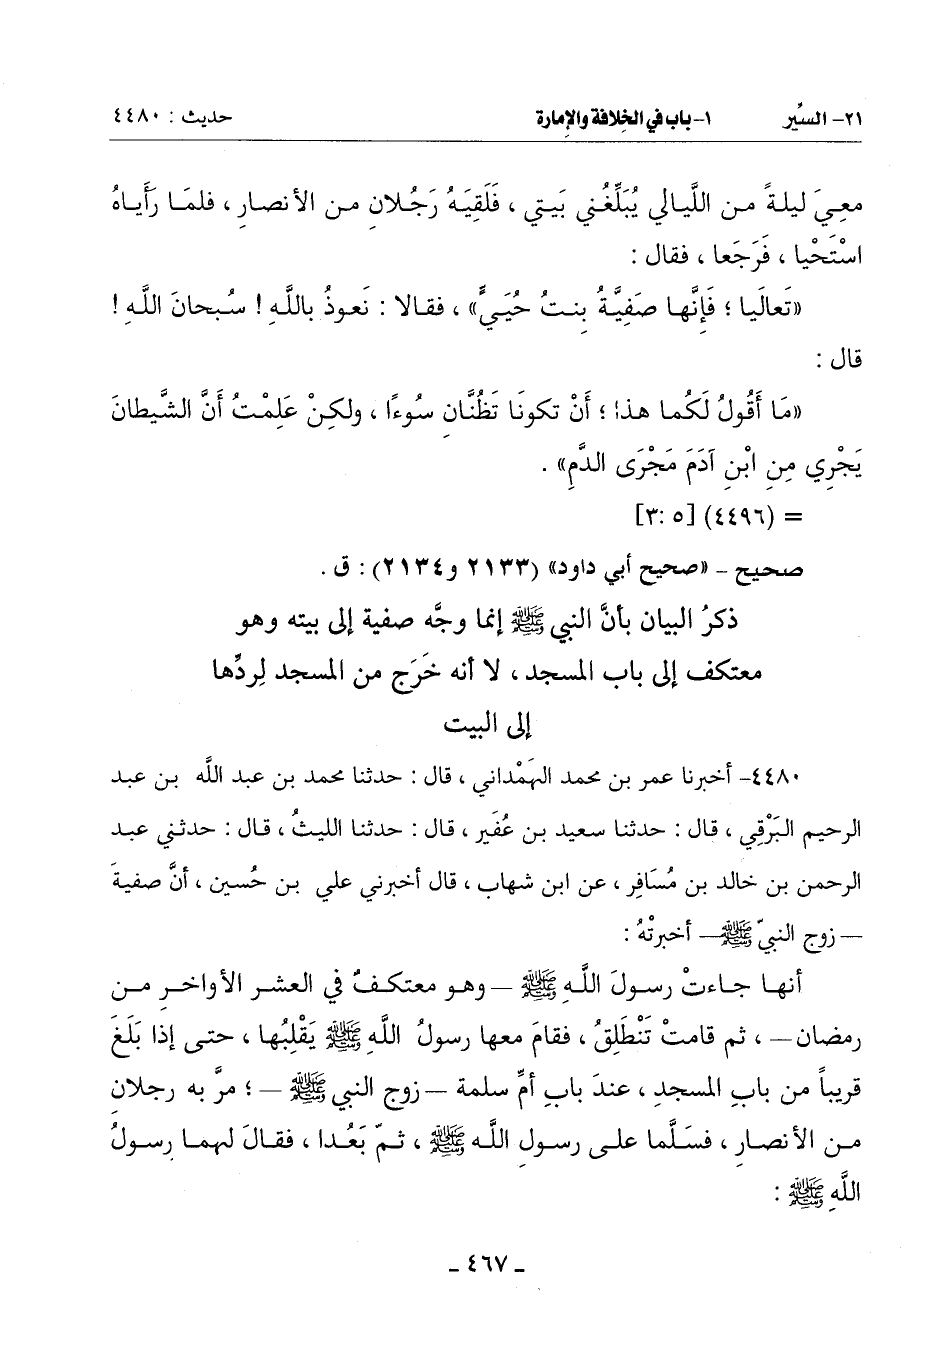 ٢١- السِّيَر ١- باب في الخِلافة والإمارة حديث : ٤٤٨٠
معِيَ ليلةً من اللَّيالي يُبَلِّغُني بَيتي ، فَلَقِيَهُ رَجُلانِ من الأنصارِ ، فلمَّا رَأَياهُ
اسْتَحْيا ، فَرَجَعا ، فقال :
«تَعالَيا ؛ فَإِنَّها صَفِيَّةُ بِنتُ حُيَيٍّ» ، فقالا : نَعوذُ باللَّهِ ! سُبحانَ اللَّهِ !
قال :
«مَا أَقُولُ لَكُما هذا ؛ أَنْ تكونَا تَظُنَّانِ سُوءًا ، ولكِنْ عَلِمْتُ أَنَّ الشَّيطانَ
يَجْرِي مِنِ ابْنِ آدَمَ مَجْرَى الدَّمِ» .
= (٤٤٩٦) [٥ :٣]
صحيح – «صحيح أبي داود» (٢١٣٣ و٢١٣٤) : ق .
ذكرُ البيان بأنَّ النبي ﷺ إنما وجَّه صفية إلى بيته وهو
معتكف إلى باب المسجد ، لا أنه خَرَج من المسجد لِردِّها
إلى البيت
٤٤٨٠- أخبرنا عمر بن محمد الهَمْداني ، قال : حدثنا محمد بن عبد اللَّه بن عبد
الرحيم البَرْقِي ، قال : حدثنا سعيد بن عُفَير ، قال : حدثنا الليثُ ، قال : حدثني عبد
الرحمن بن خالد بن مُسَافِر ، عن ابن شهاب ، قال أخبرني علي بن حُسين ، أنَّ صفيةَ
– زوج النبيّ ﷺ – أخبرتْهُ :
أنها جاءتْ رسولَ اللَّهِ ﷺ – وهو معتكفٌ في العشر الأواخرِ من
رمضان – ، ثم قامتْ تَنْطَلِقُ ، فقامَ معها رسولُ اللَّهِ ﷺ يَقْلِبُها ، حتى إذا بَلَغَ
قريباً من بابِ المسجدِ ، عندَ بابِ أمِّ سلمة – زوج النبي ﷺ – ؛ مرَّ به رجلان
من الأنصارِ ، فسَلَّما على رسولِ اللَّه ﷺ ، ثمّ بَعُدا ، فقالَ لهما رسولُ
اللَّهِ ﷺ :
– ٤٦٧ –